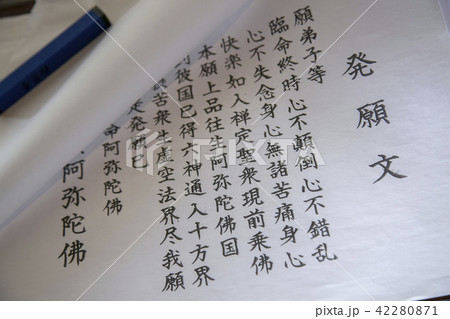 発願文
願弟子等
臨命終時心不顛倒心不錯乱
心不失念身心無諸苦痛身心
快楽如入禅定聖衆現前乗佛
本願上品往生阿弥陀佛国
彼国已得六神通入十方界
苦衆生虚空法界尽我願
発願已
命阿弥陀佛
阿弥陀佛
pixta.jp - 42280871